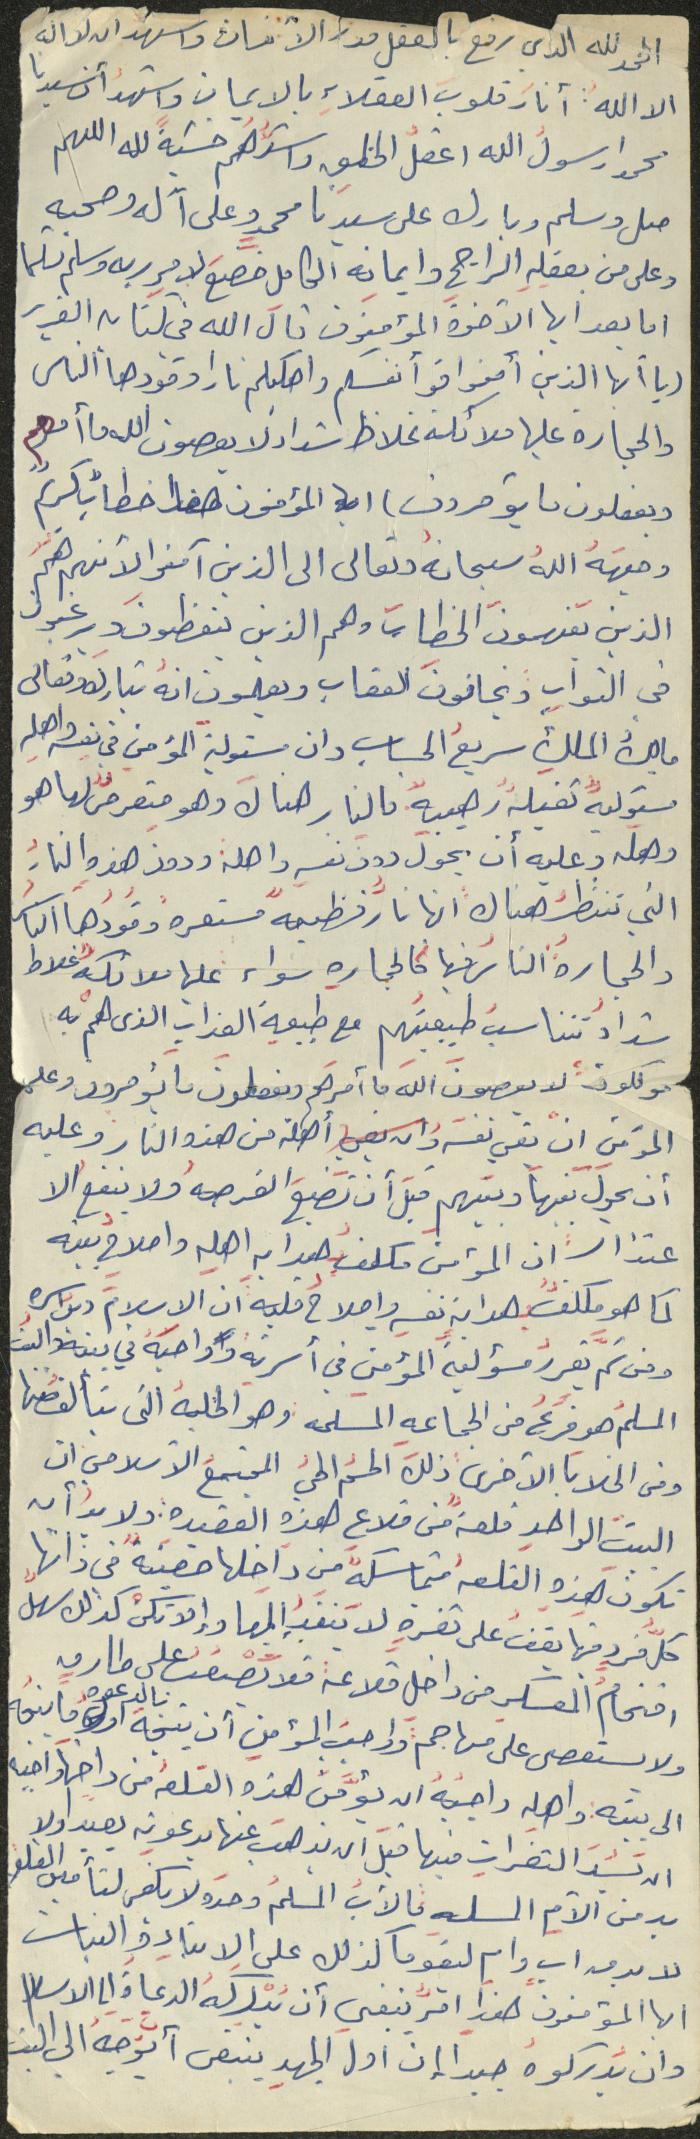 الحمد لله الذي رفع بالعقل قدر الانسان واشهد ان لا اله
الا الله أنار قلوب العقلاء بالايمان واشهد أن سيدنا
محمدا رسول الله اعقل الخلق واشدهم خشية لله اللهم
صل وسلم وبارك على سيدنا محمد وعلى آله وصحبه
وعلى من بعقله الراجح وايمانه الكامل خضع لامر ربه وسلم تسليما
اما بعد ايها الاخوة المؤمنون قال الله في كتابه العزيز
(يا أيها الذين آمنوا قوا أنفسكم واهليكم نارا وقودها الناس
والحجارة عليها ملائكة غلاظ شداد لا يعصون الله ما أمرهم
ويفعلون ما يؤمرون) ايها المؤمنون هذا خطاب كريم
وجهه الله سبحانه وتعالى الى الذين آمنوا لأنهم هم
الذين يفهمون الخطاب وهم الذين يتعظون ويرغبون
في الثواب ويخافون العقاب ويعلمون انه تبارك وتعالى
مالك الملك سريع الحساب وان مسئولية المؤمن في نفسه واهله
مسئولية ثقيلة رهيبة فالنار هناك وهو متعرض لها هو
وهله وعليه أن يحول دون نفسه واهله ودون هذه النار
التي تنتظر هناك انها نار فظيعة مستعرة وقودها الناس
والحجارة الناس فيها كالحجارة سواء عليها ملائكة غلاظ
شداد تتناسب طبيعتهم مع طبيعة العذاب الذي هم به
موكلون لا يعصون الله ما أمرهم ويفعلون ما يؤمرون وعلى
المؤمن ان يقي نفسه وان يقي أهله من هذه النار وعليه
أن يحول بينها وبينهم قبل أن تضيع الفرصة ولا ينفع الا
عتذار ان المؤمن مكلف هداية اهله واصلاح بيته
كما هو مكلف هداية نفسه واصلاح قلبه ان الاسلام دين اسرة
ومن ثم يقرر مسؤلية المؤمن في أسرته وواجبه في بيته والبيت
المسلم هو فرع من الجماعه المسلمه وهو الخلية التى يتألف منها
ومن الخلايا الأخرى ذلك الجسم الحي المجتمع الاسلامي ان
البيت الواحد قلعة من قلاع هذه العقيدة ولا بد أن
تكون هذه القلعة متماسكة من داخلها حصينة في ذاتها
كل فرد فيها يقف على ثغرة لا ينفذ إليها وإلا تكن كذلك سهل
اقتحام المعسكر من داخل قلاعه فلا يصعب على طارق
ولا يستعصى على مهاجم وواجب المؤمن أن يتجه بالدعوة أول ما يتجه
الى بيته واهله واجبه ان يؤمن هذه القلعة من داخلها واجبه
ان يسد الثغرات فيها قبل ان يذهب عنها بدعوته بعيدا ولا
بد من الأم المسلمة فالأب المسلم وحده لا يكفى لتأمين القلعة
لا بد من اب وام ليقوما كذلك على الابناء والبنات
ايها المؤمنون هذا أمر ينبغي أن يدركه الدعاة الى الاسلام
وان يدركوه جيدا إن اول الجهد ينبغي أن يوجه الى البيت